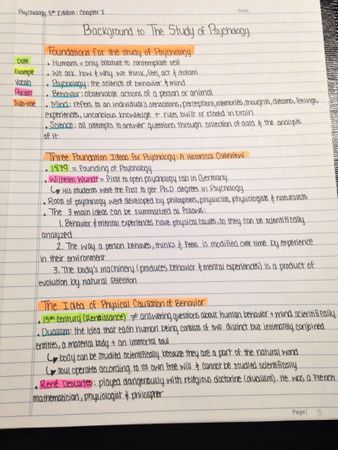 Psychology 5th Edition: Chapter 1
Date:
Background to The Study of Psychology
Foundations for the study of Psychology
Date
Example
Vocab
People
Sub-title
• Humans = only creature to contemplate self
• We ask how & why we think, feel, act & dream
• Psychology: the science of behavior & mind
• Behavior: observable actions of a person or animal
• Mind: refers to an individual's sensations, perceptions, memories, thoughts, dreams, feelings,
experiences, unconscious knowledge + rules built or stored in brain
• Science: all attempts to answer questions through collection of data & the analysis
of it.
Three Foundation Ideas for Psychology: A Historical Overview
• 1879 = founding of Psychology
• Wilhelm Wundt = First to open psychology lab in Germany
↳ His students were the first to get Ph.D. degrees in Psychology
• Roots of psychology were developed by philosphers, physicists, physiologists & naturalists
• The 3 main ideas can be summarized as follows:
1. Behavior & mental experiences have physical causes, so they can be scientifically
analyzed
2. The way a person behaves, thinks & feels is modified over time by experience
in their environment
3. The body's machinery (produces behavior & mental experiences) is a product of
evolution by natural selection
The Idea of Physical Causation of Behavior
• 15th century (Renaissance) ≠ answering questions about human behavior + mind scientifically
• Dualism: the idea that each human being consists of two distinct but intimately conjoined
entities, a material body + an immortal soul
↳ body can be studied scientifically because they are a part of the natural world
↳ soul operates according to its own free will & cannot be studied scientifically
• René Descartes: played dangerously with religious doctrine (dualism). He was a French
mathematician, physiologist & philosopher
Page 5